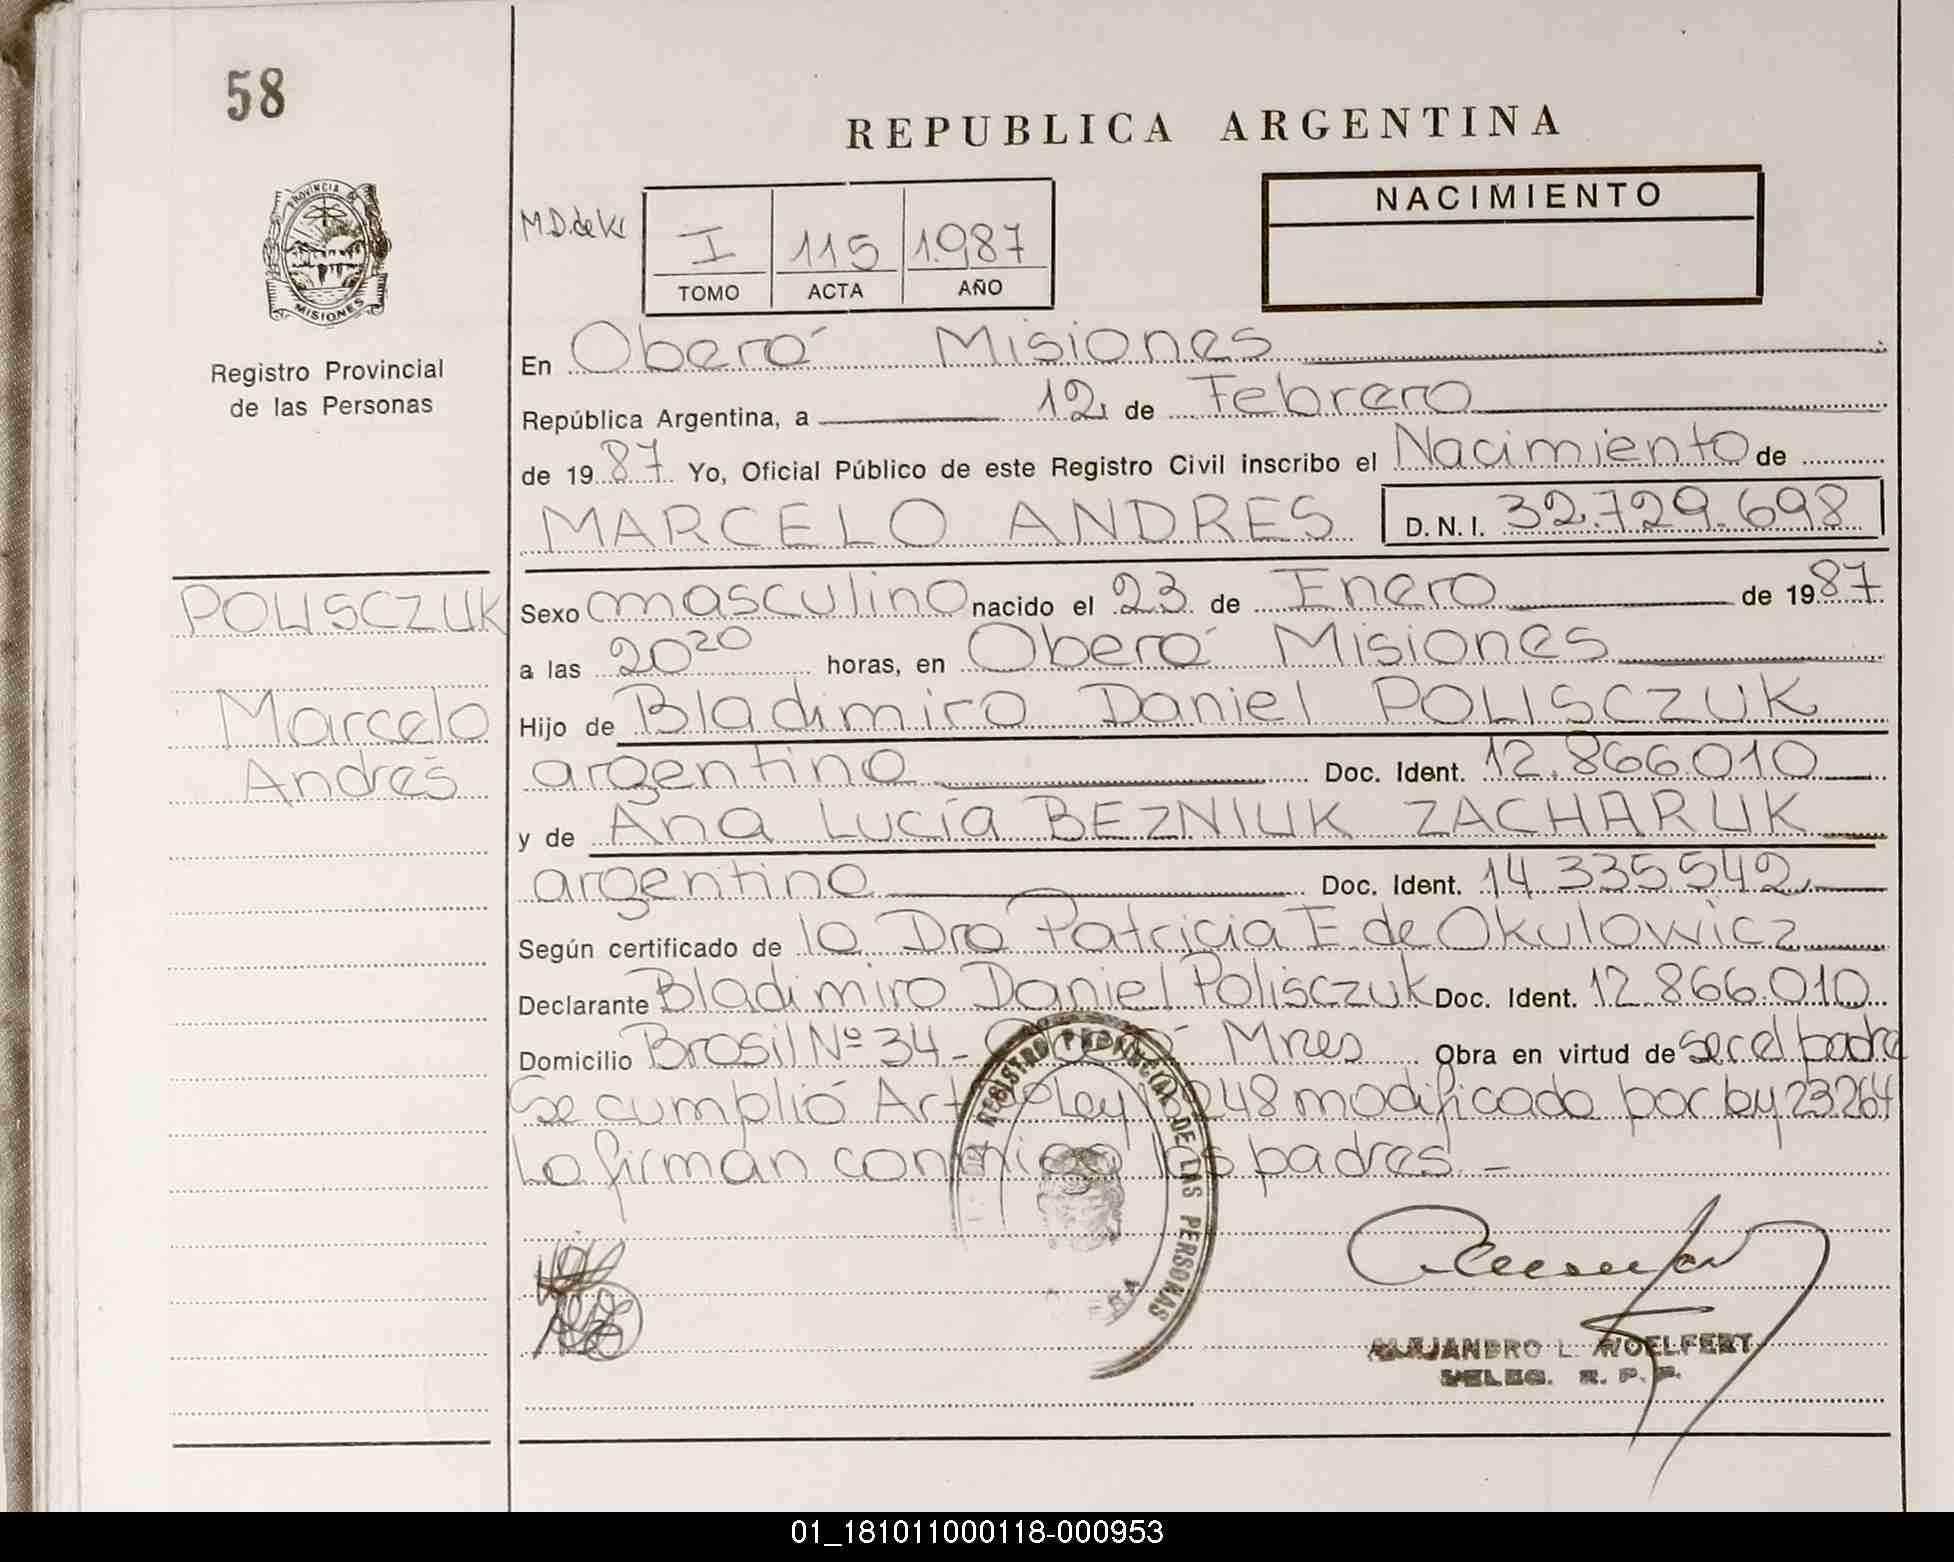 58
REPUBLICA ARGENTINA
NACIMIENTO
PROVINCIA DE
MISIONES
Registro Provincial
de las Personas
M.D. de K.
I 115 1.987
TOMO ACTA AÑO
En Oberá Misiones
República Argentina, a 12 de Febrero
de 1987 Yo, Oficial Público de este Registro Civil inscribo el Nacimiento de
MARCELO ANDRES D.N.I. 32.729.698
POLISCZUK
Marcelo
Andres
Sexo masculino nacido el 23 de Enero de 1987
a las 20 20 horas, en Oberá Misiones
Hijo de Bladimiro Daniel POLISCZUK
argentino Doc. Ident. 12.866.010
y de Ana Lucía BEZNIUK ZACHARUK
argentina Doc. Ident. 14.335.542
Según certificado de la Dra Patricia F. de Okulowicz
Declarante Bladimiro Daniel Polisczuk Doc. Ident. 12.866.010
Domicilio Brasil Nº 34 - Oberá Mnes Obra en virtud de ser el padre
Se cumplió Art Ley 18248 modificado por ley 23264
Lo firman conmigo los padres. -
REGISTRO PROVINCIAL DE LAS PERSONAS
ALEJANDRO L. WOELFERT
DELEG. R. P. P.
01_181011000118-000953